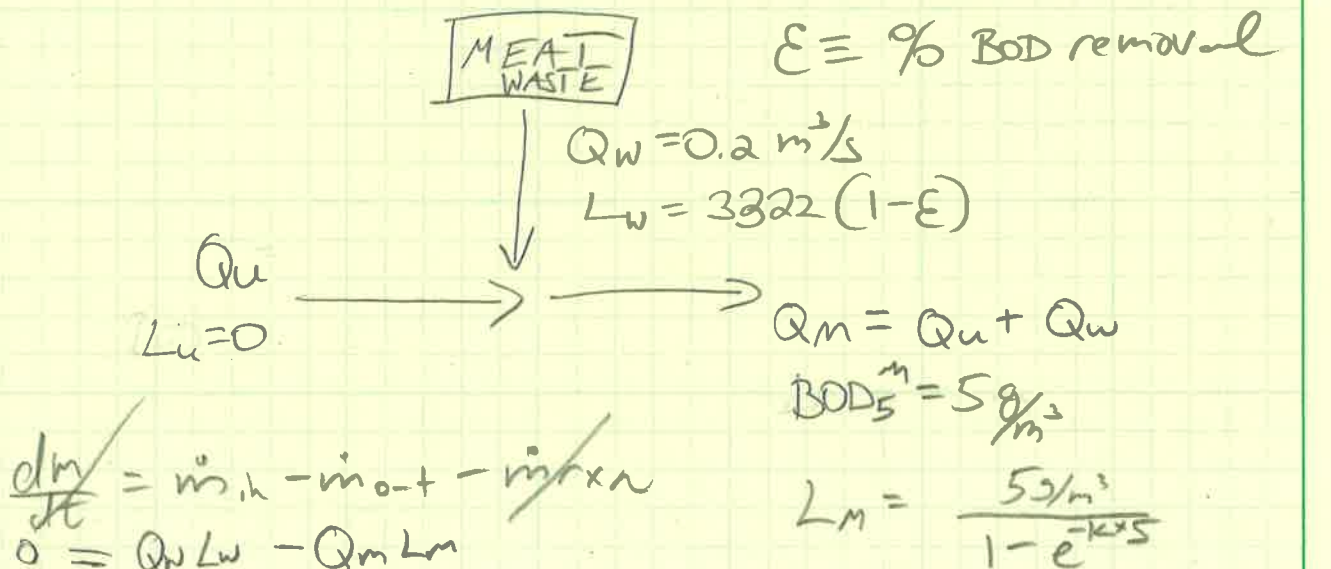 MEAT
WASTE
ε ≡ % BOD removal
Qw = 0.2 m³/s
Lw = 3322 (1-ε)
Qu
Lu=0
Qm = Qu + Qw
BOD₅ᵐ = 5 g/m³
dm/dt = ṁin - ṁout - ṁrxn
0 = QwLw - QmLm
Lm = 5g/m³ / 1 - e^-k×5